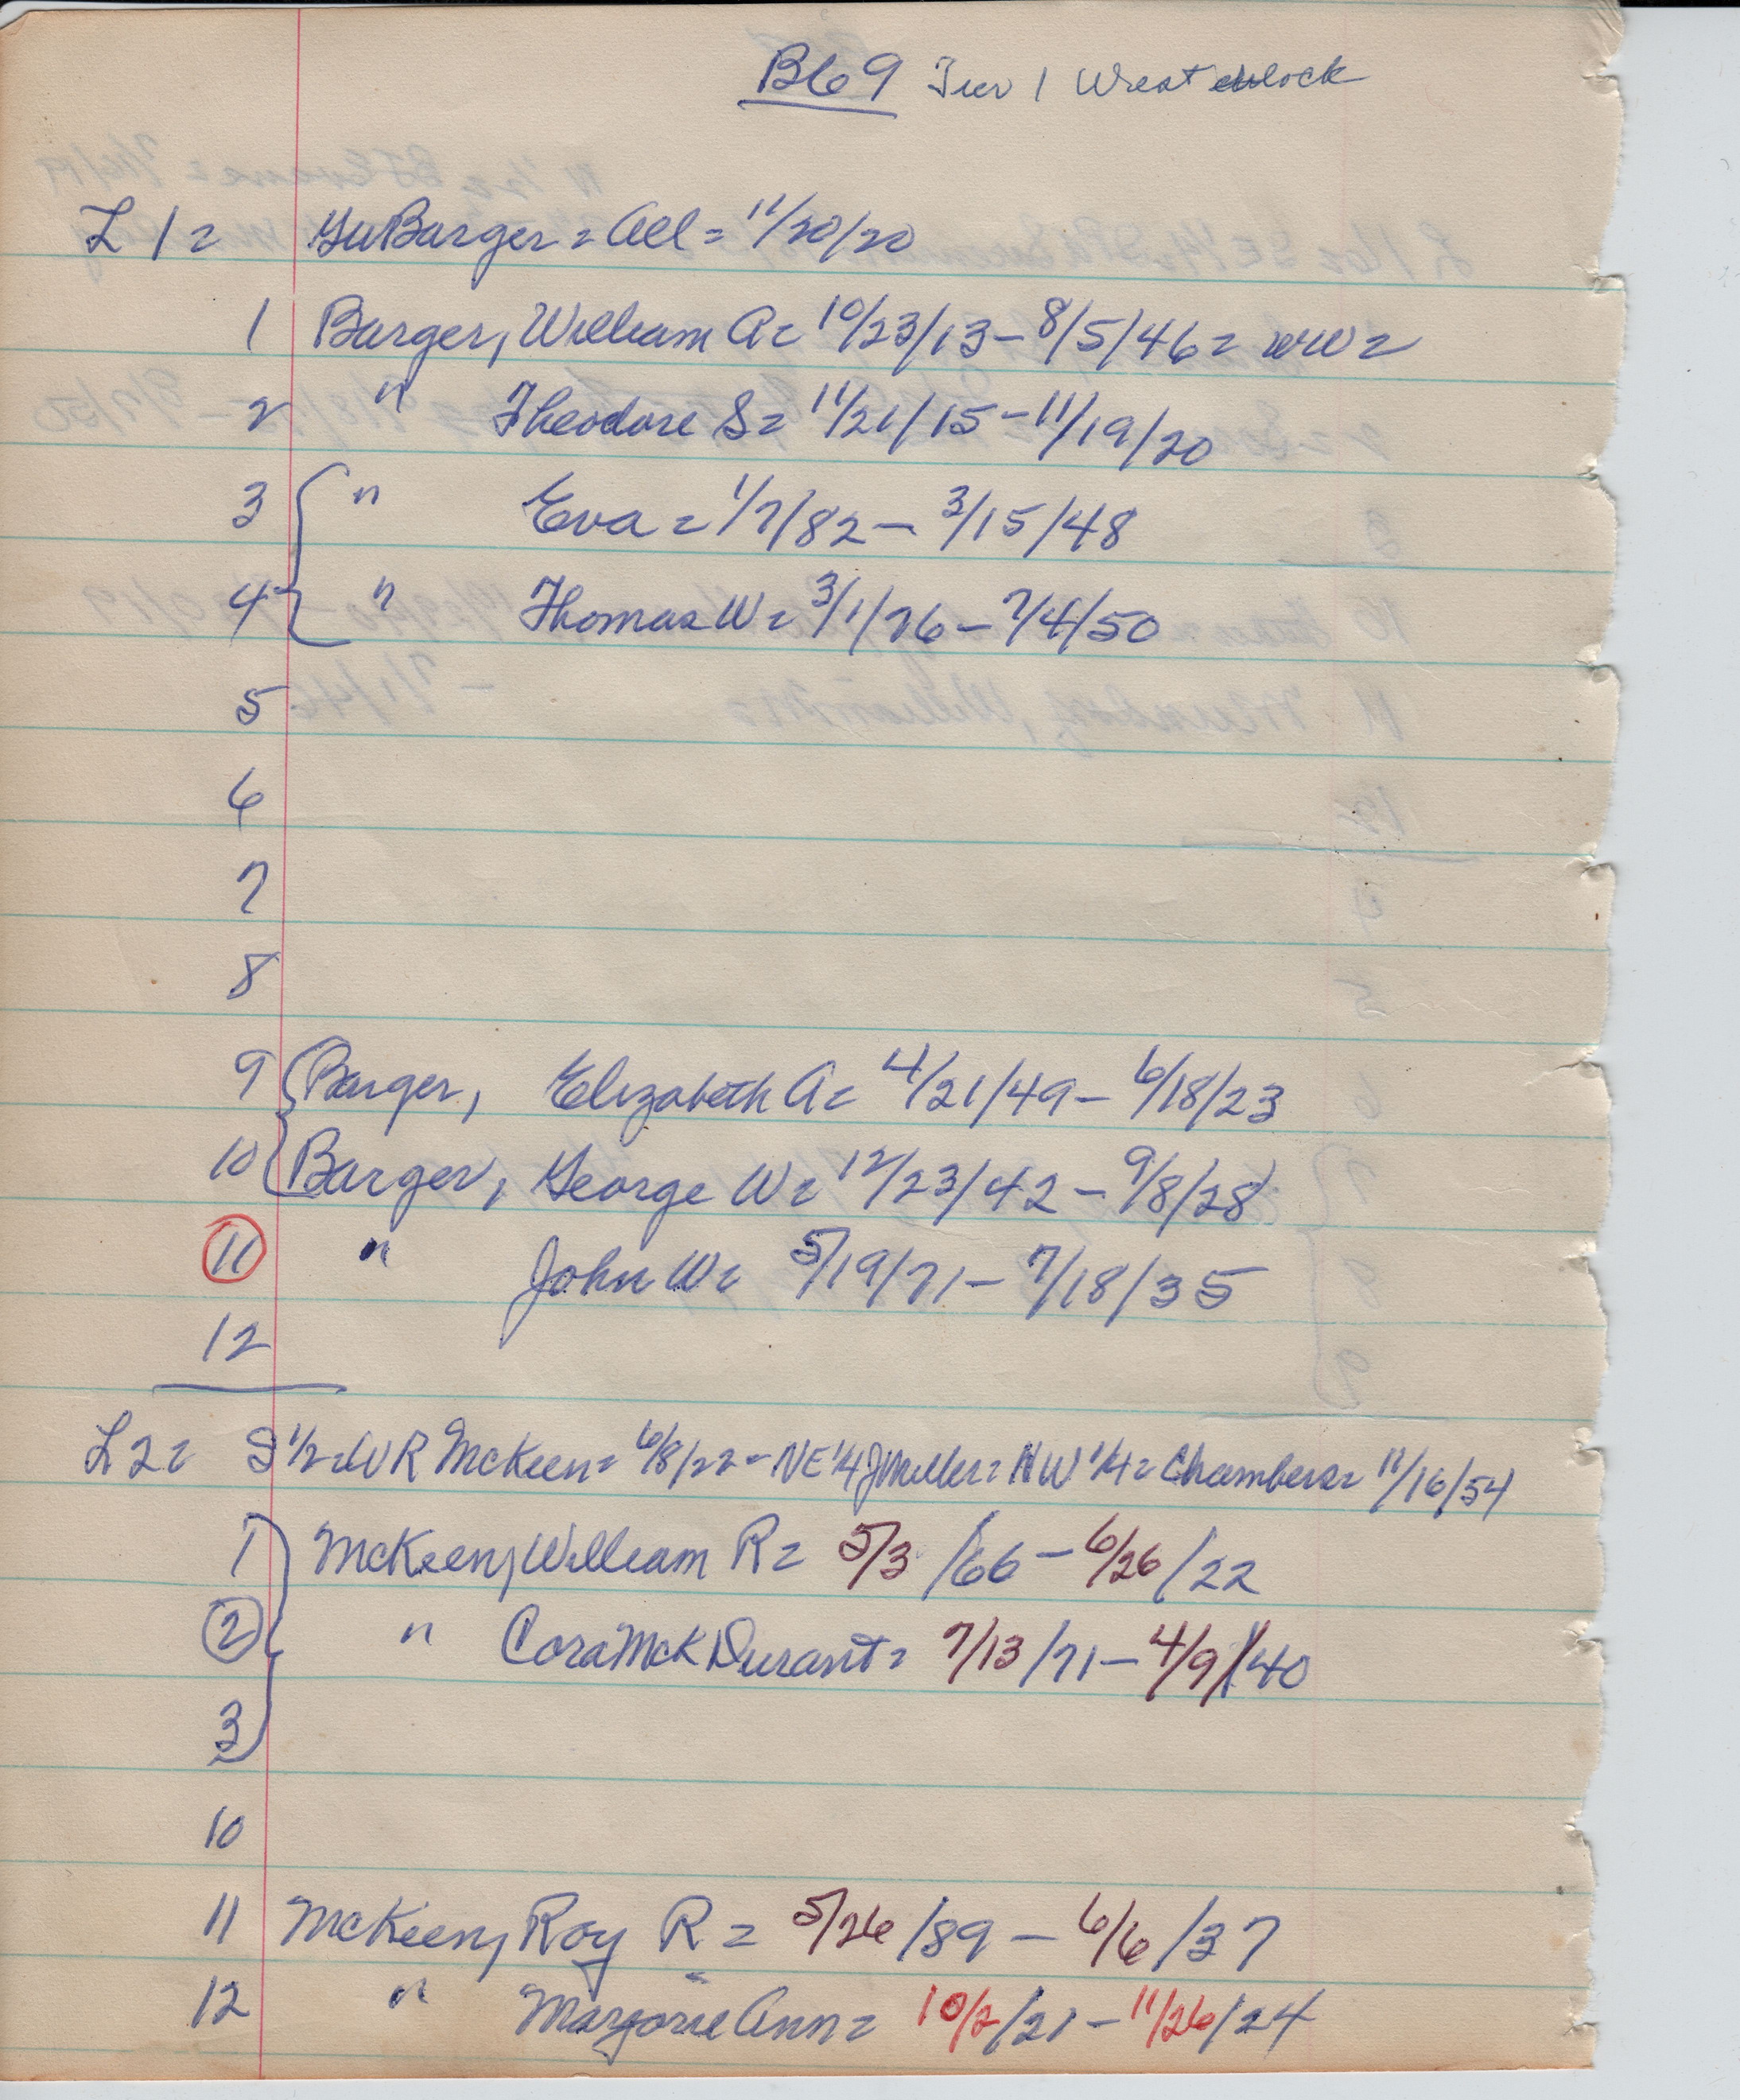 B69 Tier 1 West block
L 1 = GWBarger = All = 11/20/20
1 Barger, William A = 10/23/13 - 8/5/46 = WW =
2 " Theodore S = 11/21/15 - 11/19/20
3 " Eva = 1/7/82 - 3/15/48
4 " Thomas W = 3/1/76 - 7/4/50
5
6
7
8
9 Barger, Elizabeth A = 4/21/49 - 6/18/23
10 Barger, George W = 12/23/42 - 9/8/28
11 " John W = 5/19/71 - 7/18/35
12
L 2 = S 1/2 = WR McKeen = 6/8/22 - NE 1/4 JMiller = NW 1/4 = Chambers = 11/16/54
1 McKeen, William R = 5/3/66 - 6/26/22
2 " Cora McK Durant = 7/13/71 - 4/9/40
3
10
11 McKeen, Roy R = 5/26/89 - 6/6/37
12 " Marjorie Ann = 10/2/21 - 11/26/24